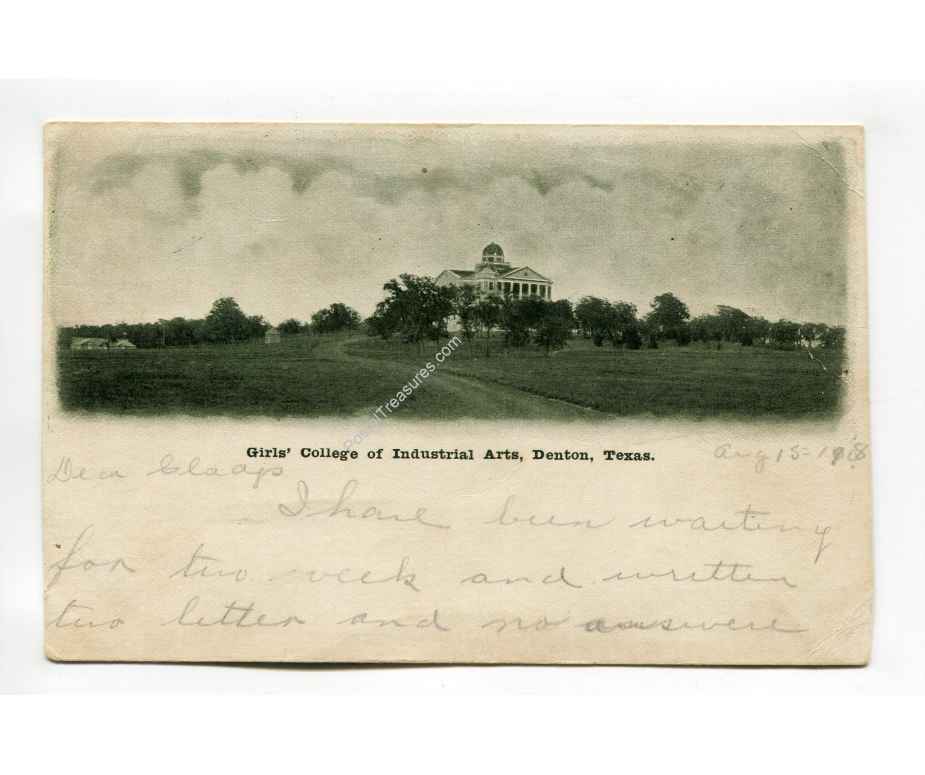 PostalTreasures.com
Girls' College of Industrial Arts, Denton, Texas.
Aug 15-1918
Dea Gladys
I have been waiting
for two week and written
two letter and no answere